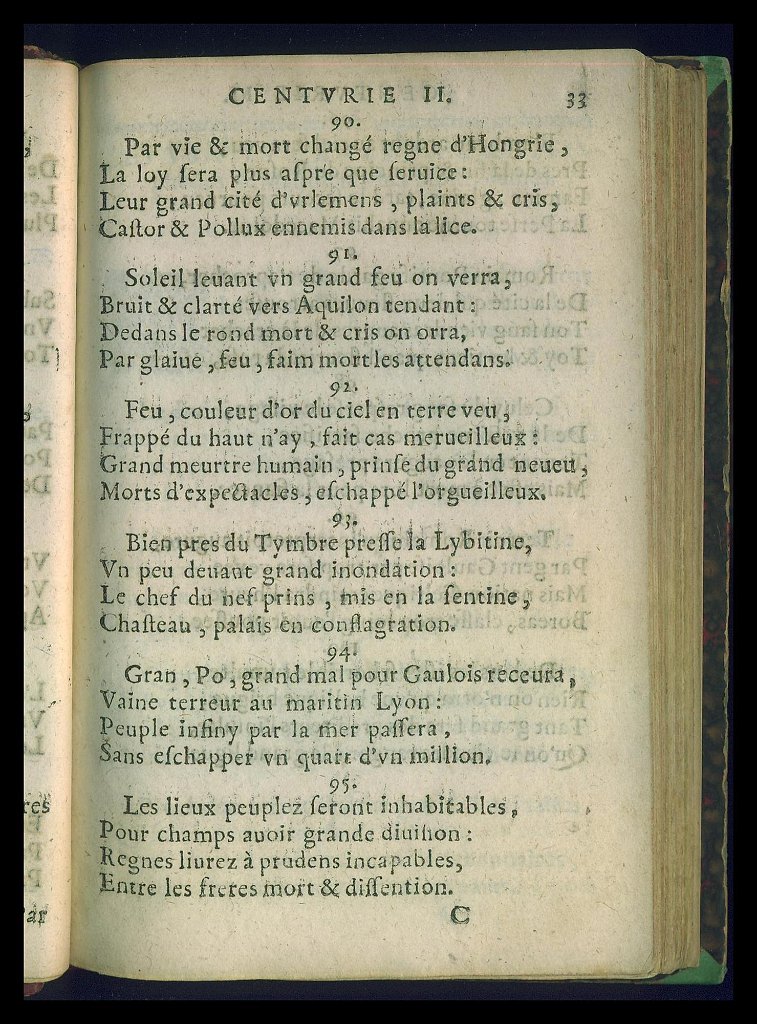 CENTVRIE II.
33
90.
Par vie & mort changé regne d'Hongrie,
La loy ſera plus aſpre que ſeruice:
Leur grand cité d'vrlemens, plaints & cris,
Caſtor & Pollux ennemis dans la lice.
91.
Soleil leuant vn grand feu on verra,
Bruit & clarté vers Aquilon tendant:
Dedans le rond mort & cris on orra,
Par glaiue, feu, faim mort les attendans.
92.
Feu, couleur d'or du ciel en terre veu,
Frappé du haut n'ay, fait cas merueilleux:
Grand meurtre humain, prinſe du grand neueu,
Morts d'expectacles, eſchappé l'orgueilleux.
93.
Bien pres du Tymbre preſſe la Lybitine,
Vn peu deuant grand inondation:
Le chef du nef prins, mis en la ſentine,
Chaſteau, palais en conflagration.
94.
Gran, Po, grand mal pour Gaulois receura,
Vaine terreur au maritin Lyon:
Peuple infiny par la mer paſſera,
Sans eſchapper vn quart d'vn million.
95.
Les lieux peuplez ſeront inhabitables,
Pour champs auoir grande diuiſion:
Regnes liurez à prudens incapables,
Entre les freres mort & diſſention.
C